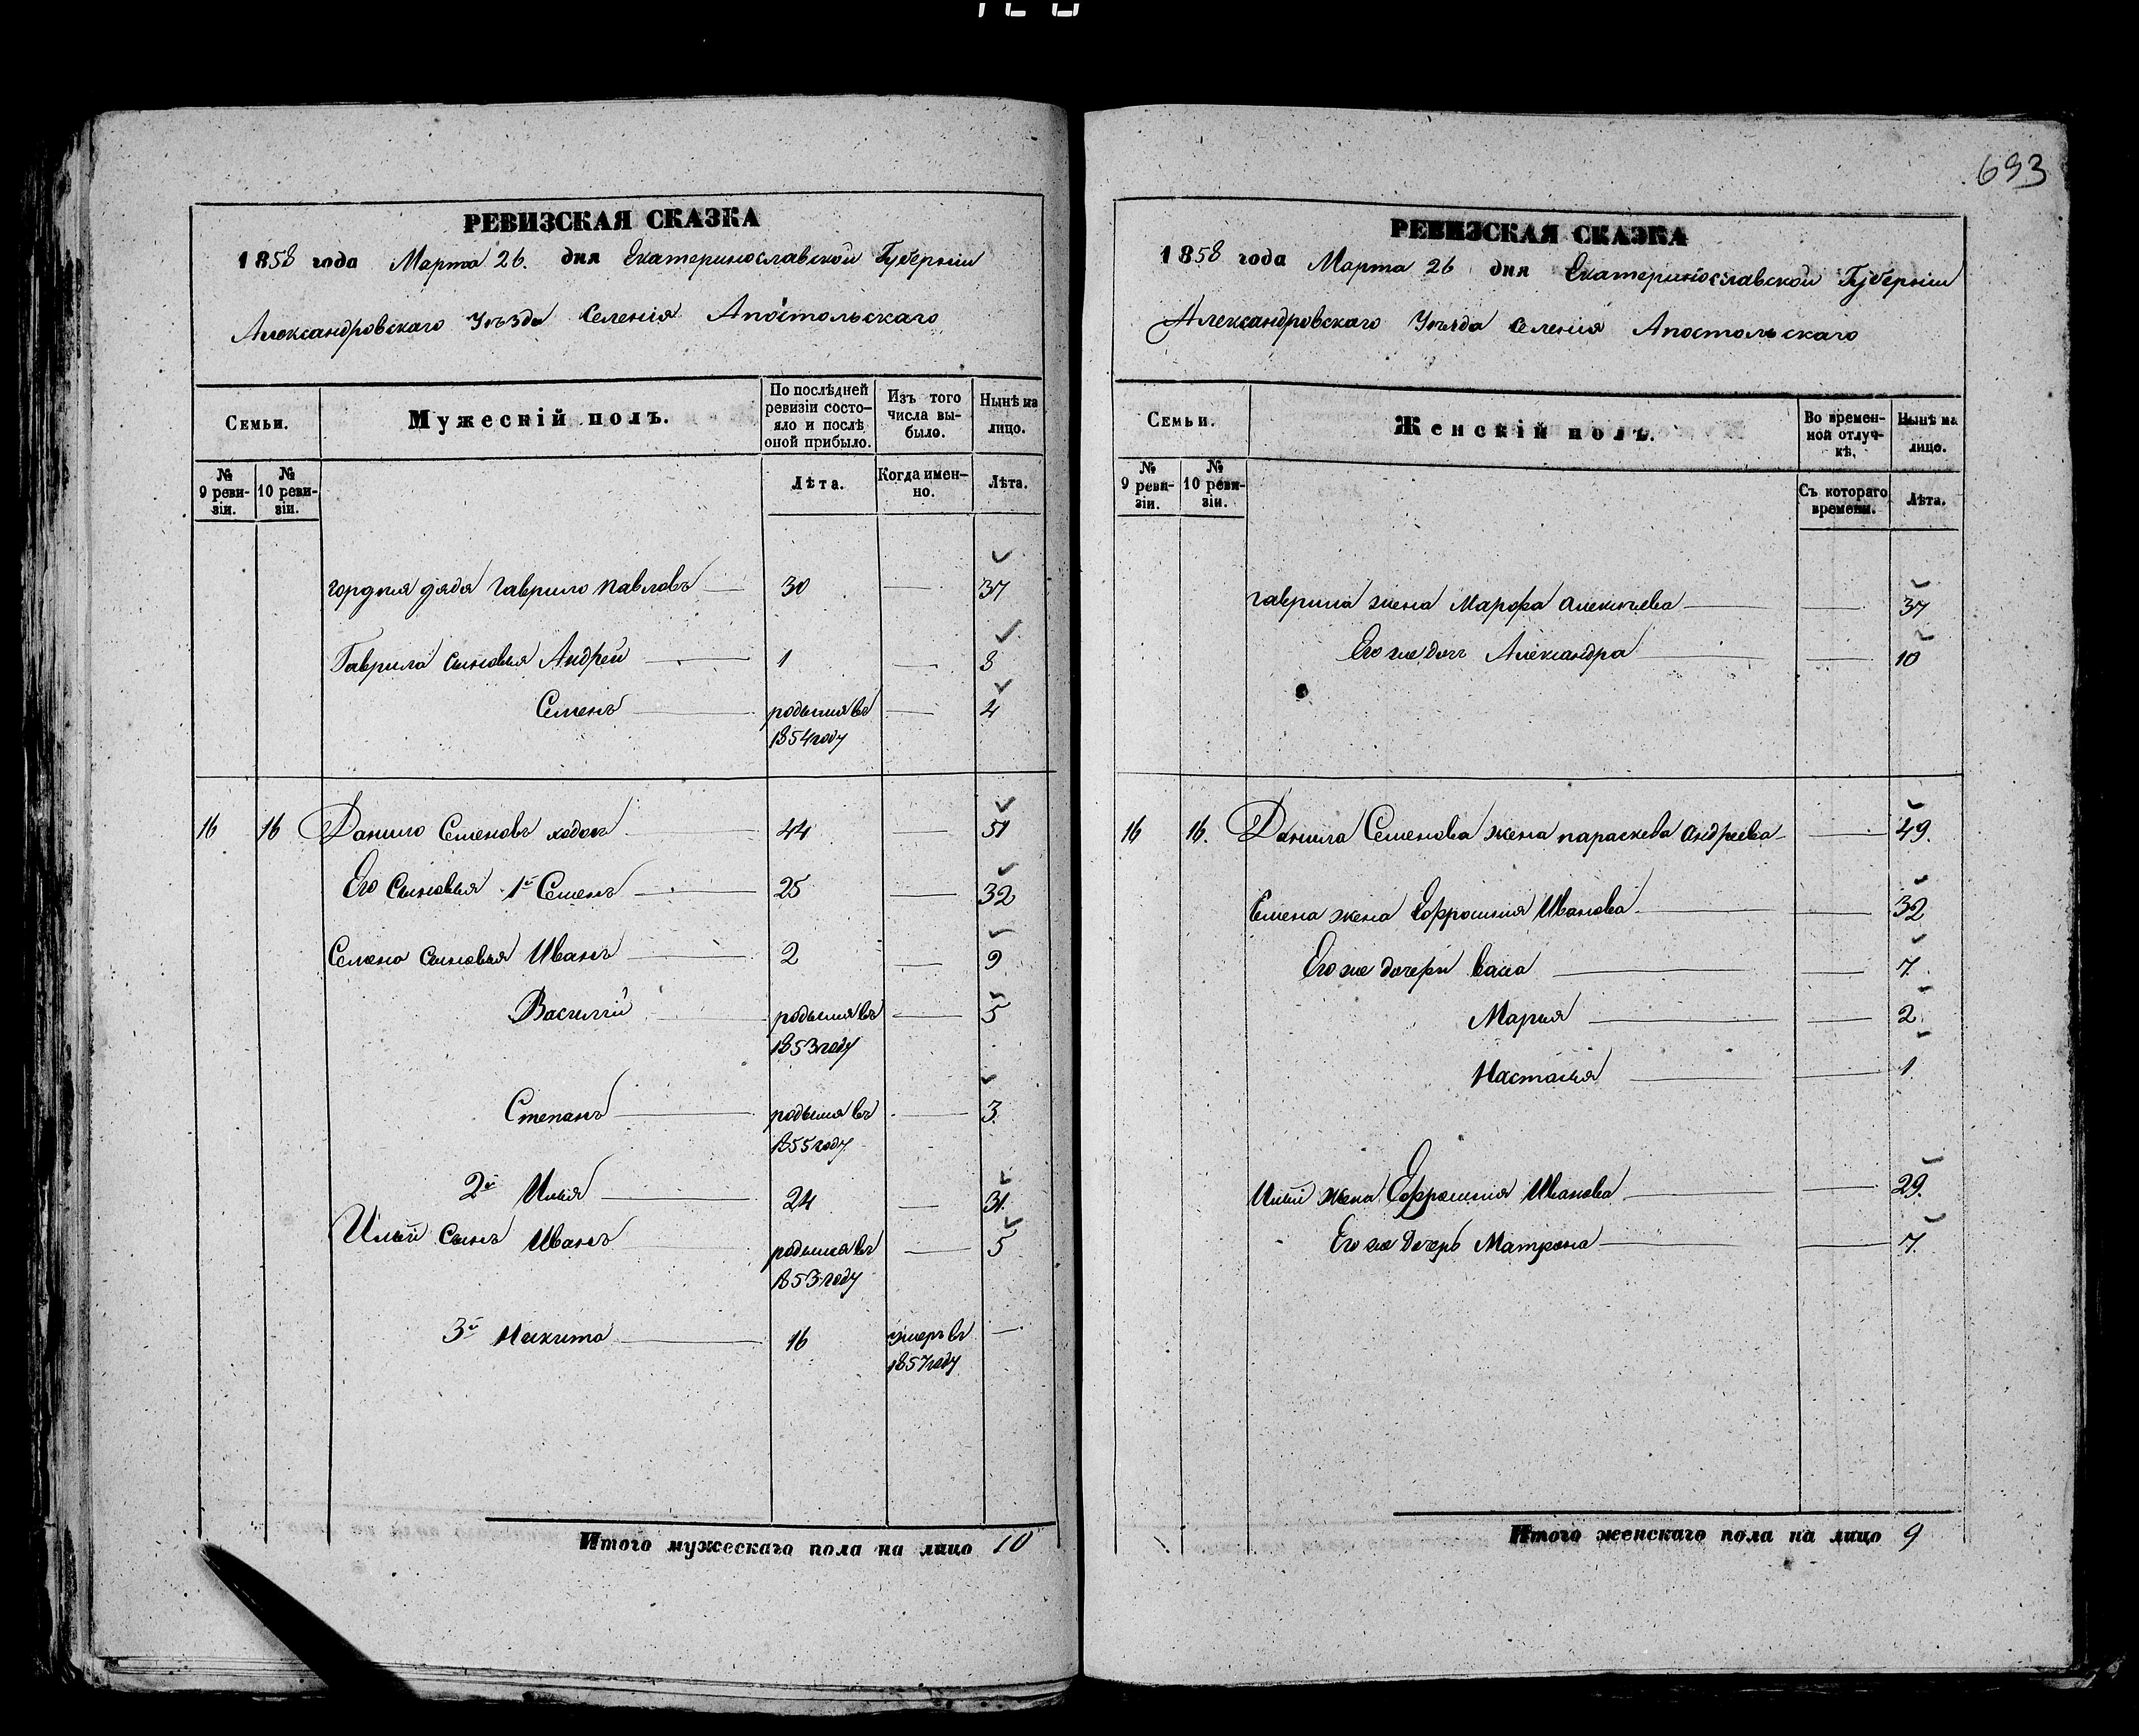 693
РЕВИЗСКАЯ СКАЗКА
1858 года Марта 26. дня Екатеринославской Губернии
Александровскаго Уѣзда Селенія Апостольскаго
Семьи.
Мужескій полъ.
По послѣдней ревизіи состояло и послѣ оной прибыло.
Изъ того числа выбыло.
Нынѣ на лицо.
№ 9 ревизіи.
№ 10 ревизіи.
Лѣта.
Когда именно.
Лѣта.
гордѣя дядя Гаврило Павловъ — 30 — 37
Гаврила сыновья Андрей — 1 — 8
Семенъ — родился въ 1854 году — 4
16 16 Данило Семеновъ ходосъ — 44 — 51
Его Сыновья 1й Семенъ — 25 — 32
Семена сыновья Иванъ — 2 — 9
Василій — родился въ 1853 году — 5
Степанъ — родился въ 1855 году — 3
2й Илья — 24 — 31.
Ильи Сынъ Иванъ — родился въ 1853 году — 5
3й Никита — 16 умеръ въ 1857 году —
Итого мужескаго пола на лицо 10
РЕВИЗСКАЯ СКАЗКА
1858 года Марта 26 дня Екатеринославской Губерніи
Александровскаго Уѣзда Селенія Апостольскаго
Семьи.
Женскій полъ.
Во временной отлучкѣ.
Нынѣ на лицо.
№ 9 ревизіи.
№ 10 ревизіи.
Съ котораго времени.
Лѣта.
гаврила жена Марфа Алексѣева — — 37
Его же доч Александра — — 10
16 16. Данила Семенова жена параскева Андреева — — 49.
Семена жена Ефросинія Иванова — — 32
Его же дочери — — 7
Марія — — 2
Настасія — — 1
Ильи жена Ефросинія Иванова — — 29.
Его же Дочерь Матрена — — 7.
Итого женскаго пола на лицо 9